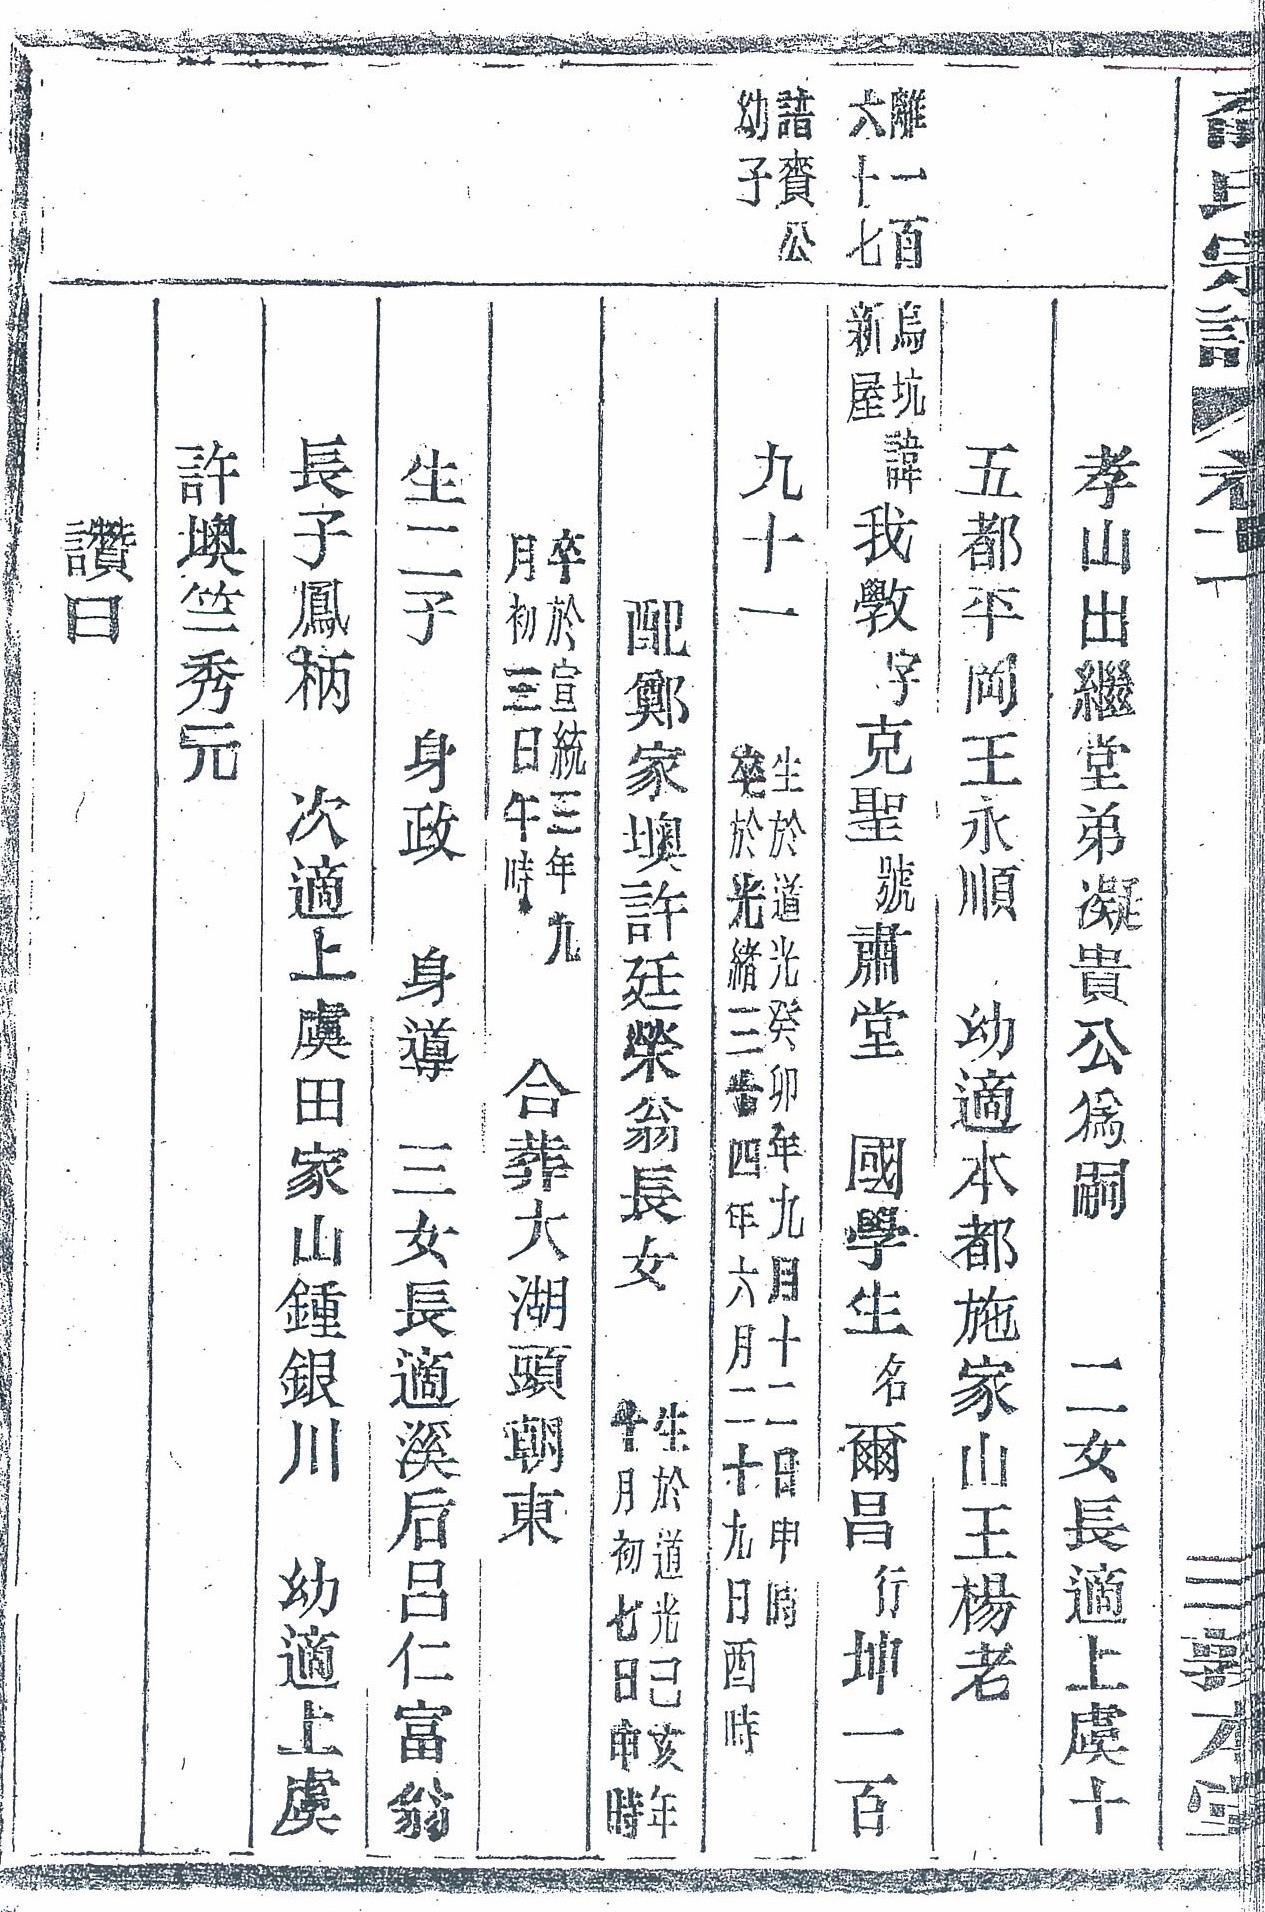 氏宗譜 卷十一
三 敦本堂
孝山出繼堂弟凝貴公爲嗣 二女長適上虞十
五都平岡王永順 幼適本都施家山王楊老
離一百
六十七
烏坑
新屋
諱我斆字克聖號肅堂 國學生名爾昌行坤一百
諳賚公
幼子
九十一
生於道光癸卯年九月十二日申時
卒於光緒三十四年六月二十九日酉時
配鄭家墺許廷榮翁長女
生於道光己亥年
十月初七日申時
卒於宣統三年九
月初三日午時
合葬大湖頭朝東
生二子 身政 身導 三女長適溪后呂仁富翁
長子鳳柄 次適上虞田家山鍾銀川 幼適上虞
許墺竺秀元
讚曰